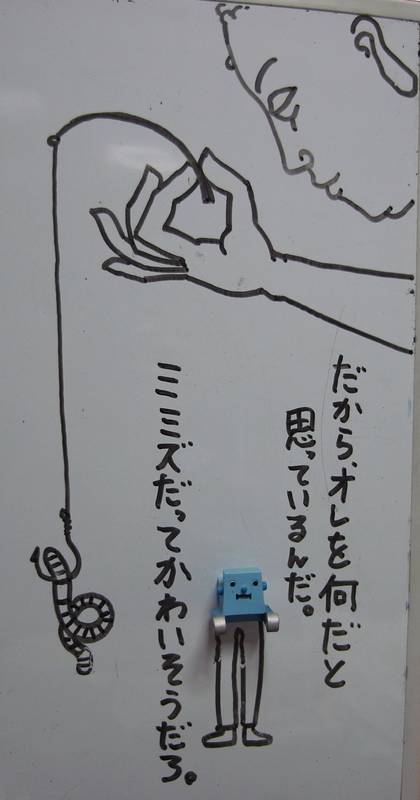 だから、オレを何だと
思っているんだ。
ミミズだってかわいそうだろ。